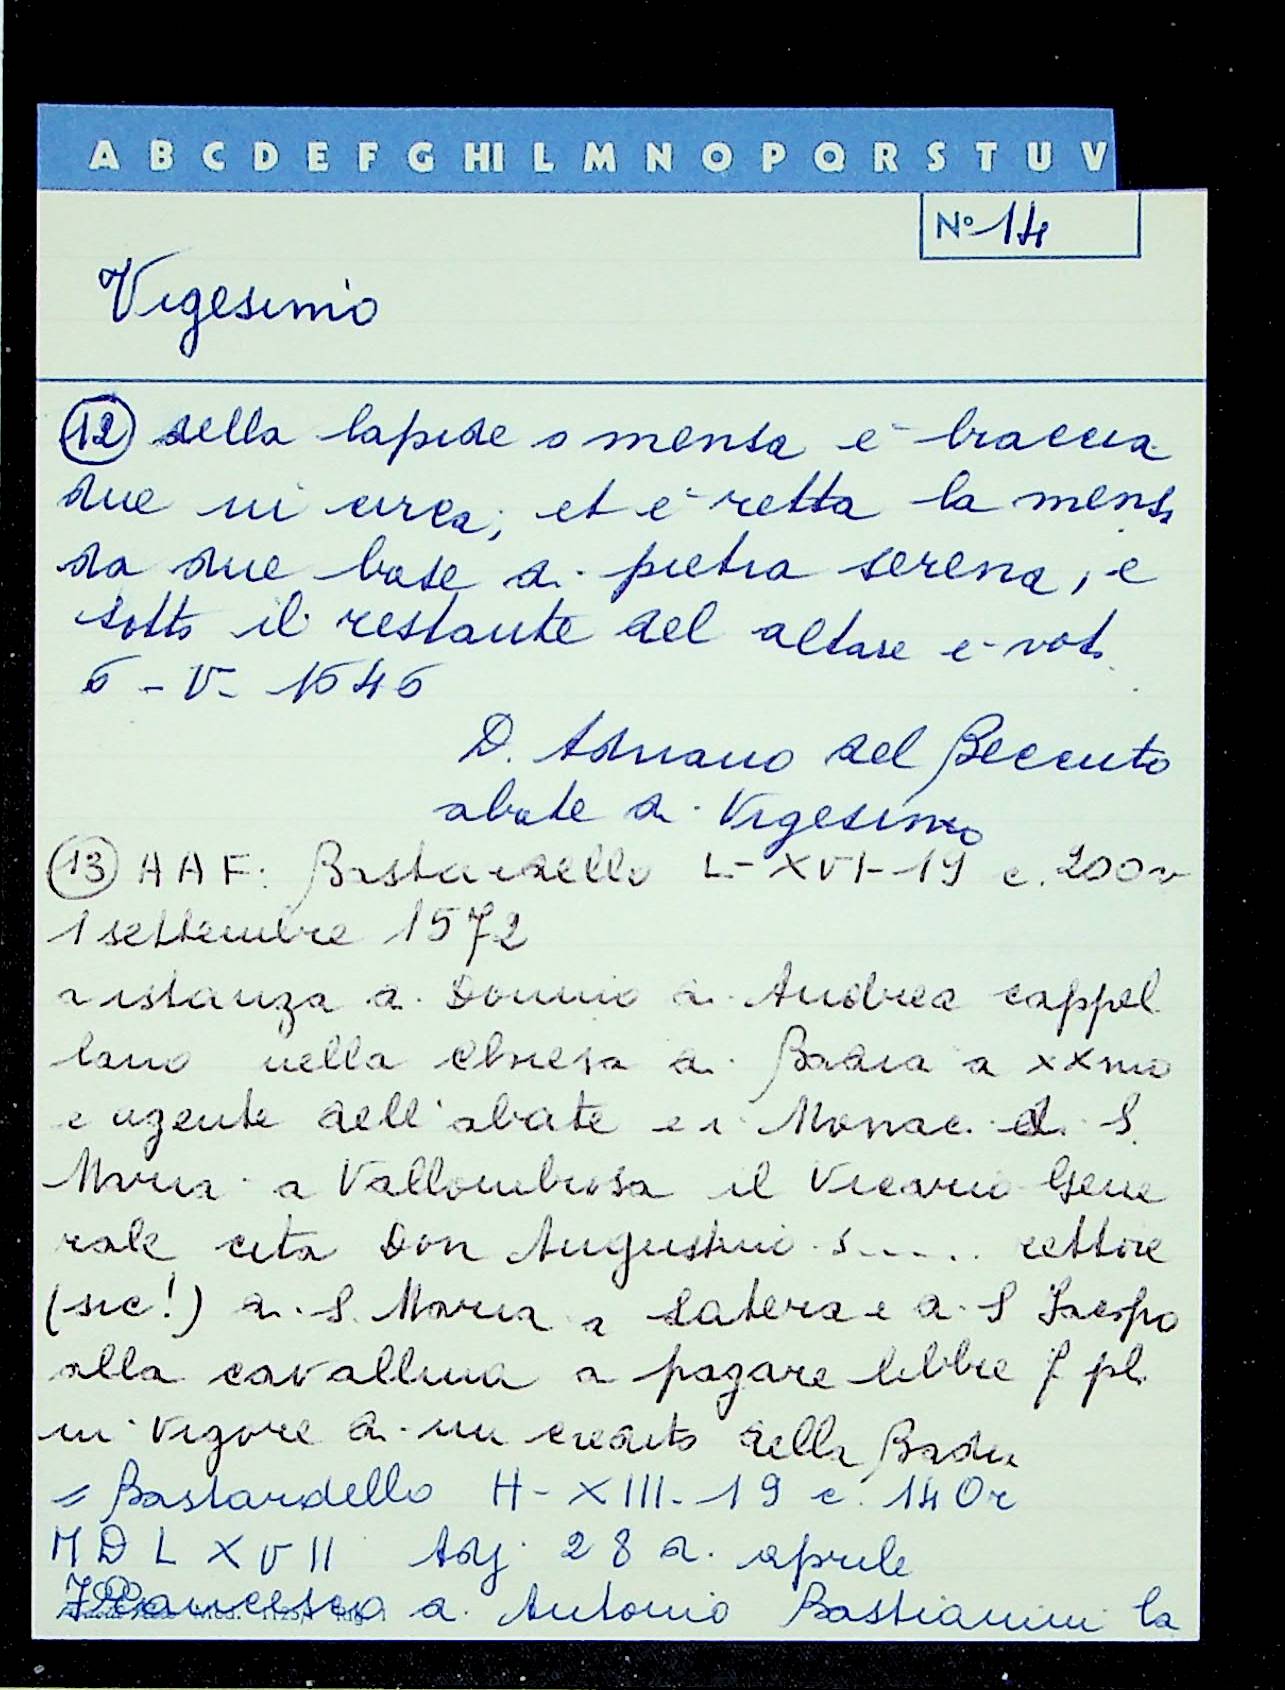 A B C D E F G HI L M N O P Q R S T U V
N° 14
Vigesimo
(12) della lapide o mensa è braccia
due in circa; et è retta la mensa
da due base di pietra serena, e
sotto il restante del altare è voto
6 - V - 1646
D. Adriano del Beccuto
abate di Vigesimo
(13) AAF: Bastardello L-XVI-19 c. 200v
1 settembre 1572
a istanza di Donnino di Andrea cappel
lano nella chiesa di Badia a xxmo
e agente dell'abate e i Monac. di S.
Maria a Vallombrosa il Vicario Gene
rale cita Don Augustino S..... rettore
(sic!) di S. Maria a Latera e di S Jacopo
alla cavallina a pagare libbre 7 pl.
in vigore di un credito della Badia
= Bastardello H-XIII-19 c. 140r
MDLXVII Adj. 28 di aprile
Francesco di Antonio Bastianini la